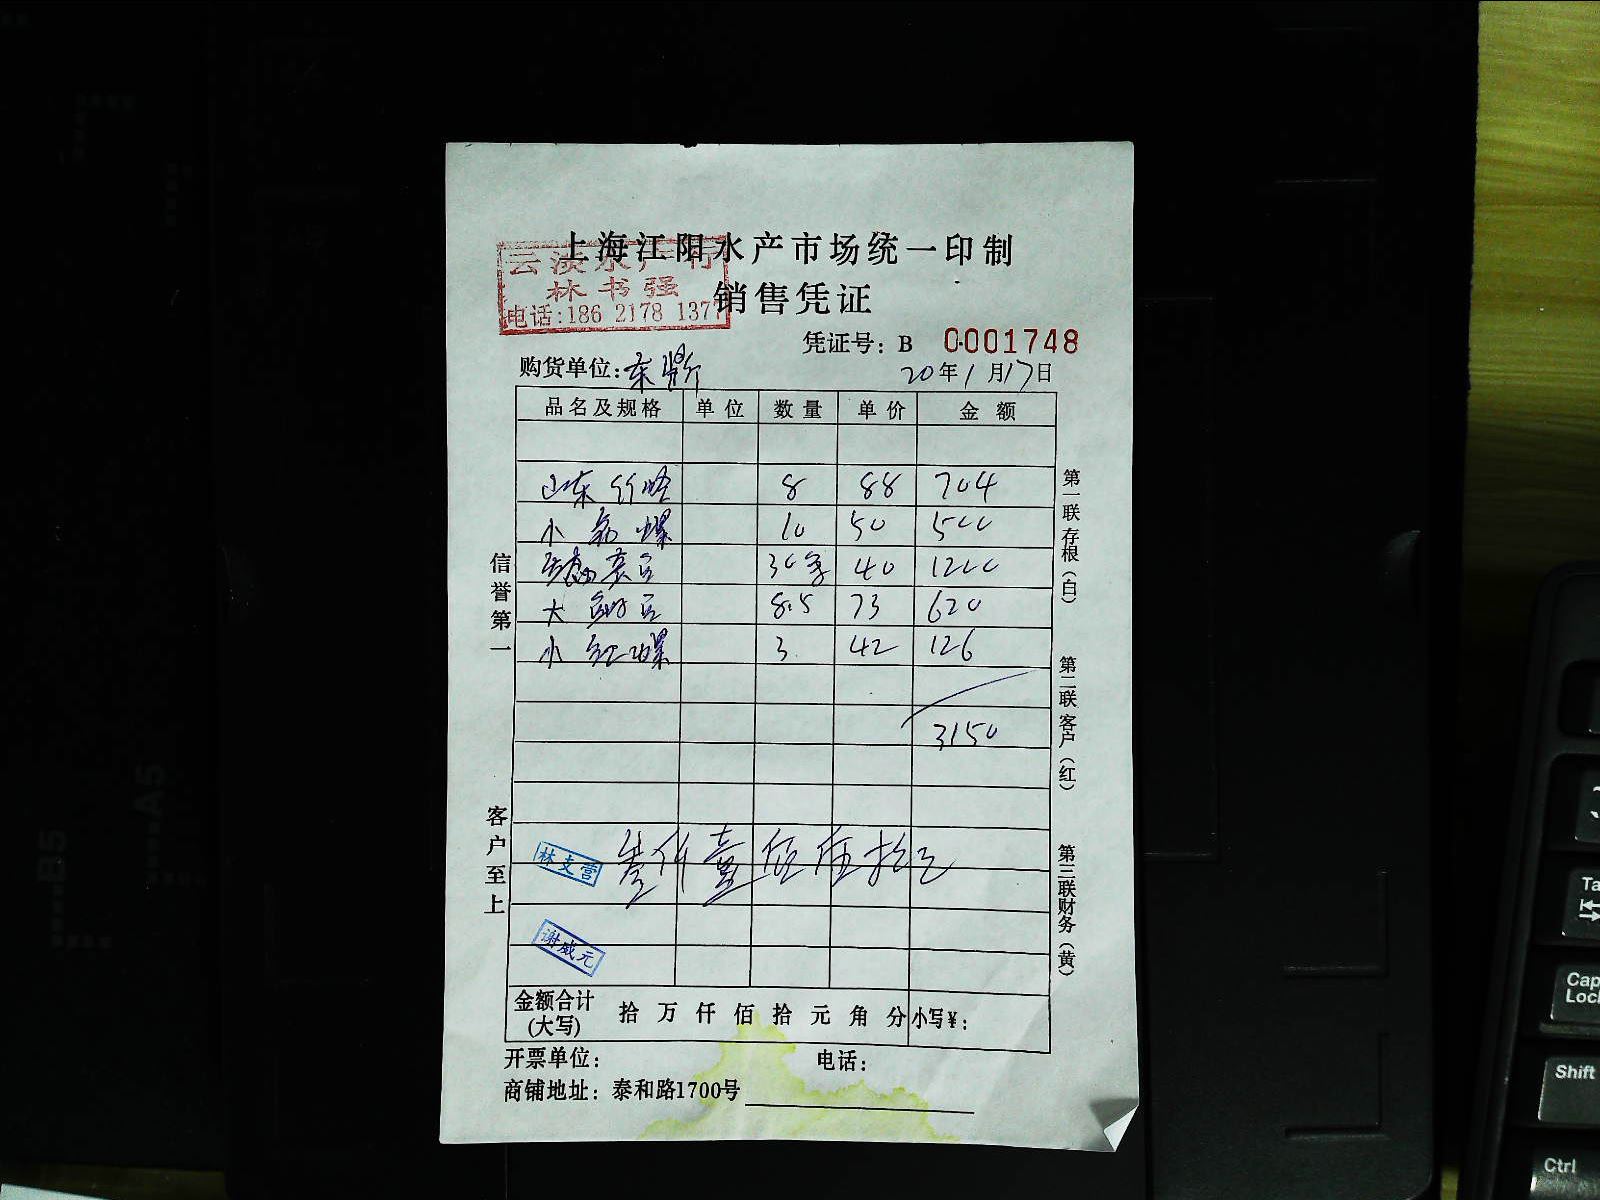 上海江阳水产市场统一印制
云淡水产行
林书强
电话:186 2178 1377
销售凭证
凭证号: B 0001748
购货单位:
20年1月17日
品名及规格 单位 数量 单价 金额
山东竹蛏 8 88 704
小 螺 10 50 500
30 40 1200
大 8.5 73 620
小红螺 3. 42 126
3150
叁仟壹佰伍拾元
林支营
谢威元
金额合计(大写) 拾 万 仟 佰 拾 元 角 分 小写¥:
开票单位: 电话:
商铺地址: 泰和路1700号
信誉第一
客户至上
第一联存根(白)
第二联客户(红)
第三联财务(黄)
B5
A5
Tab
Caps Lock
Shift
Ctrl